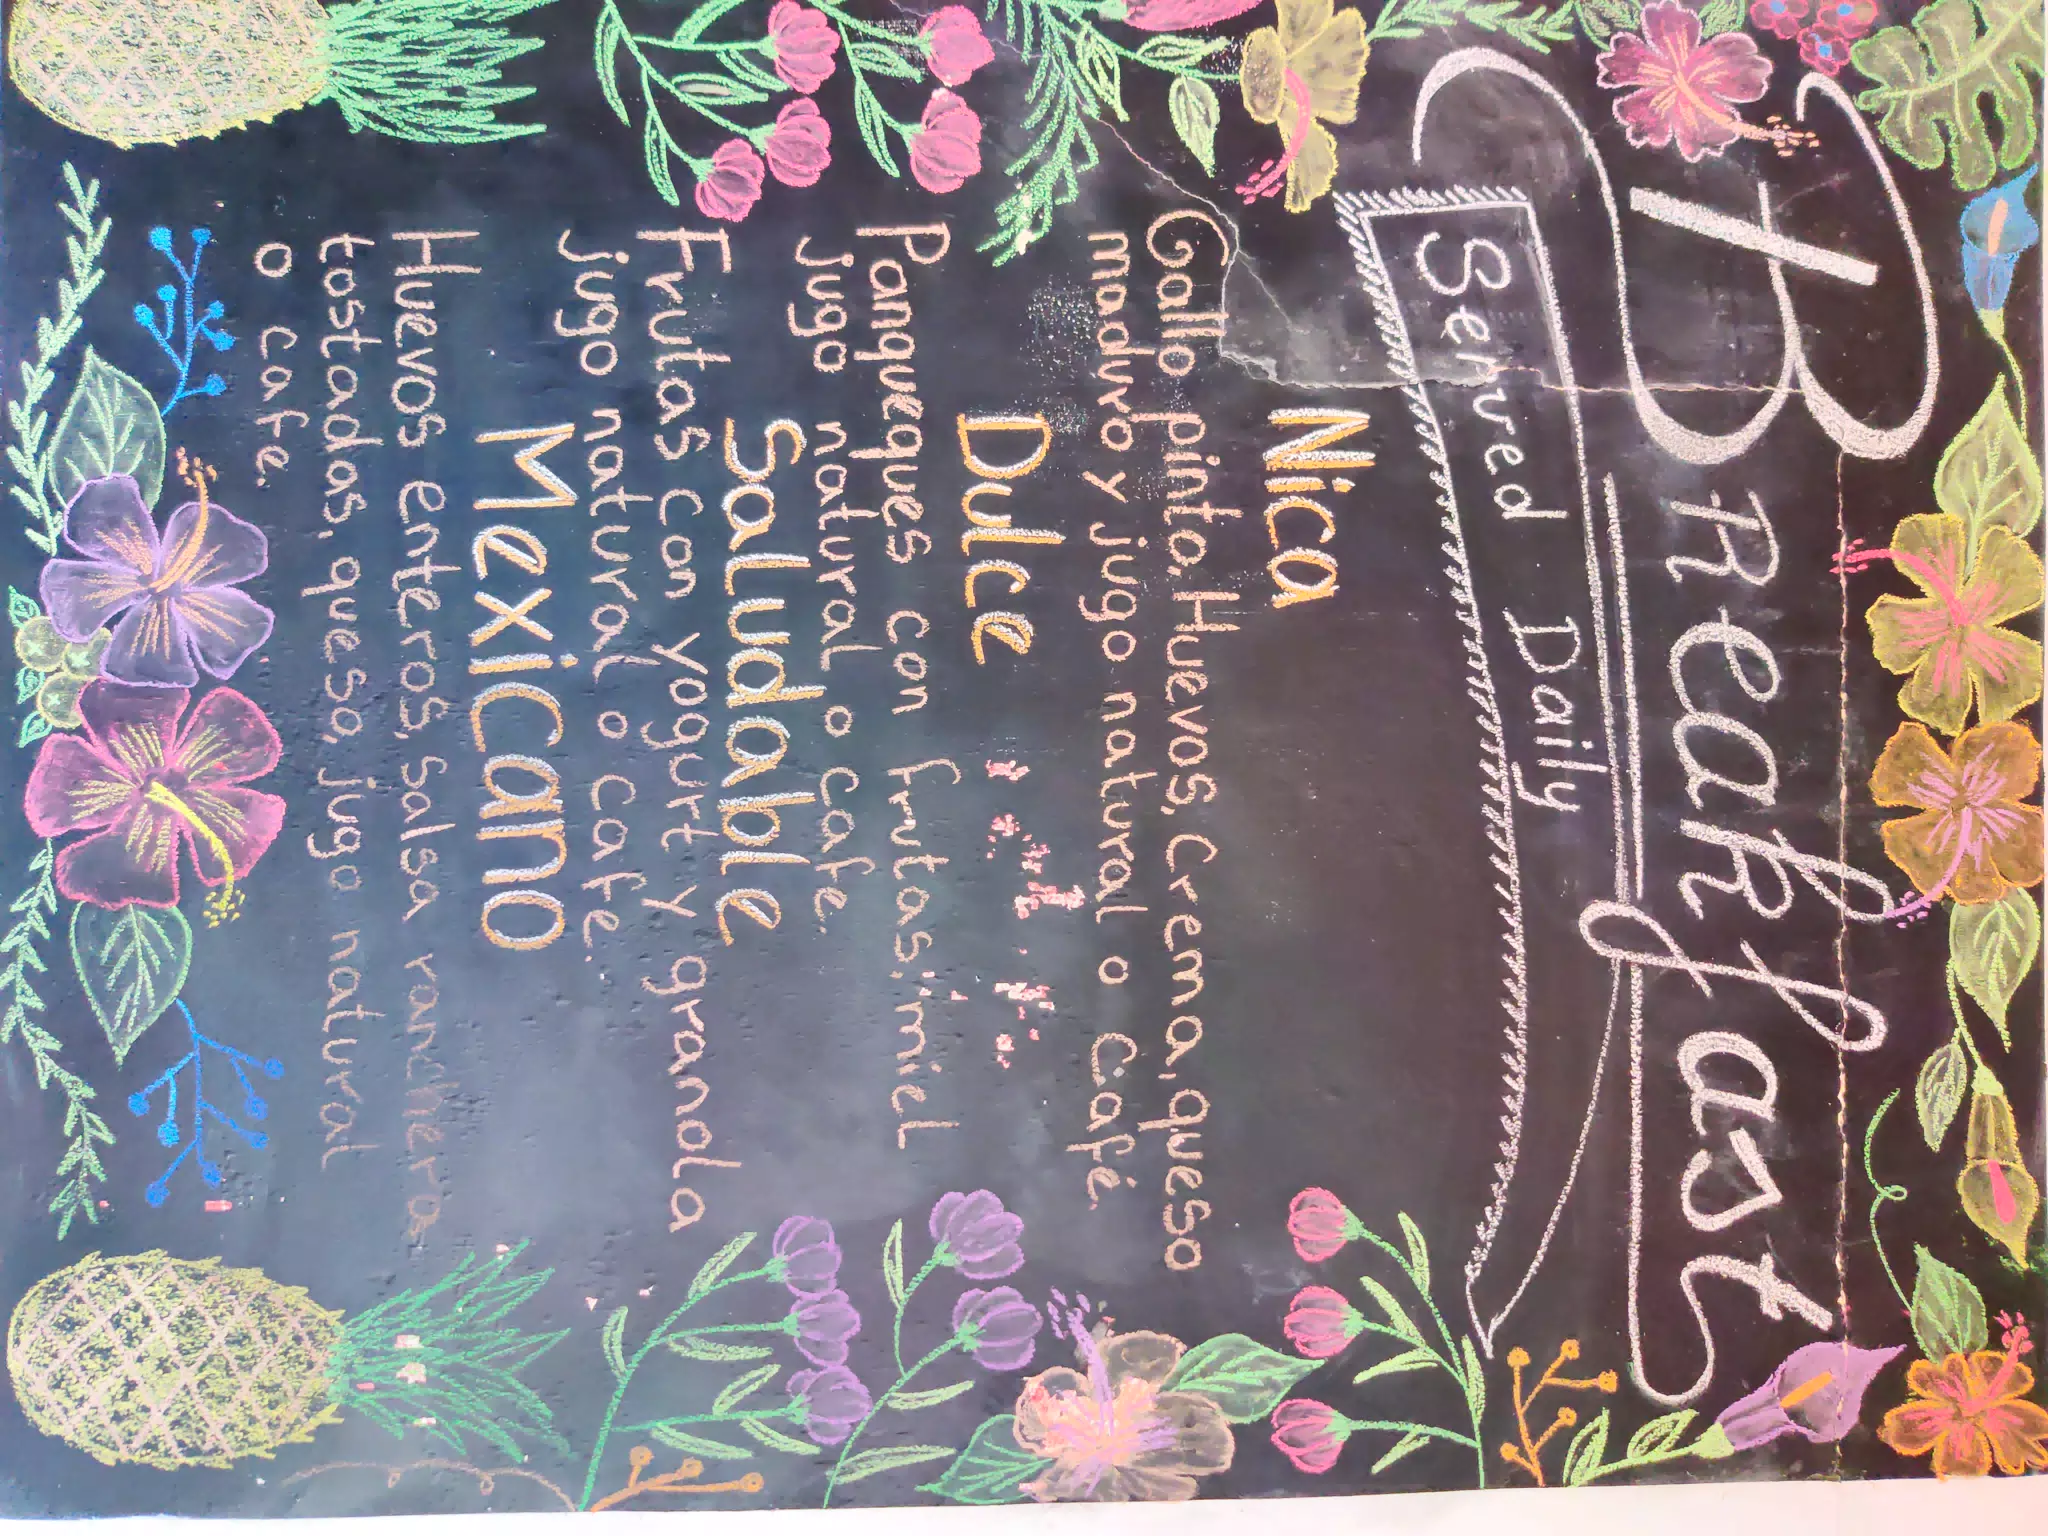 Breakfast
Served Daily
Nica
Gallo pinto, Huevos, Crema, queso
maduro y jugo natural o Café.
Dulce
Panqueques con frutas, miel
jugo natural o cafe.
Saludable
Frutas con yogurt y granola
jugo natural o cafe.
Mexicano
Huevos enteros, salsa ranchera
tostadas, queso, jugo natural
o cafe.